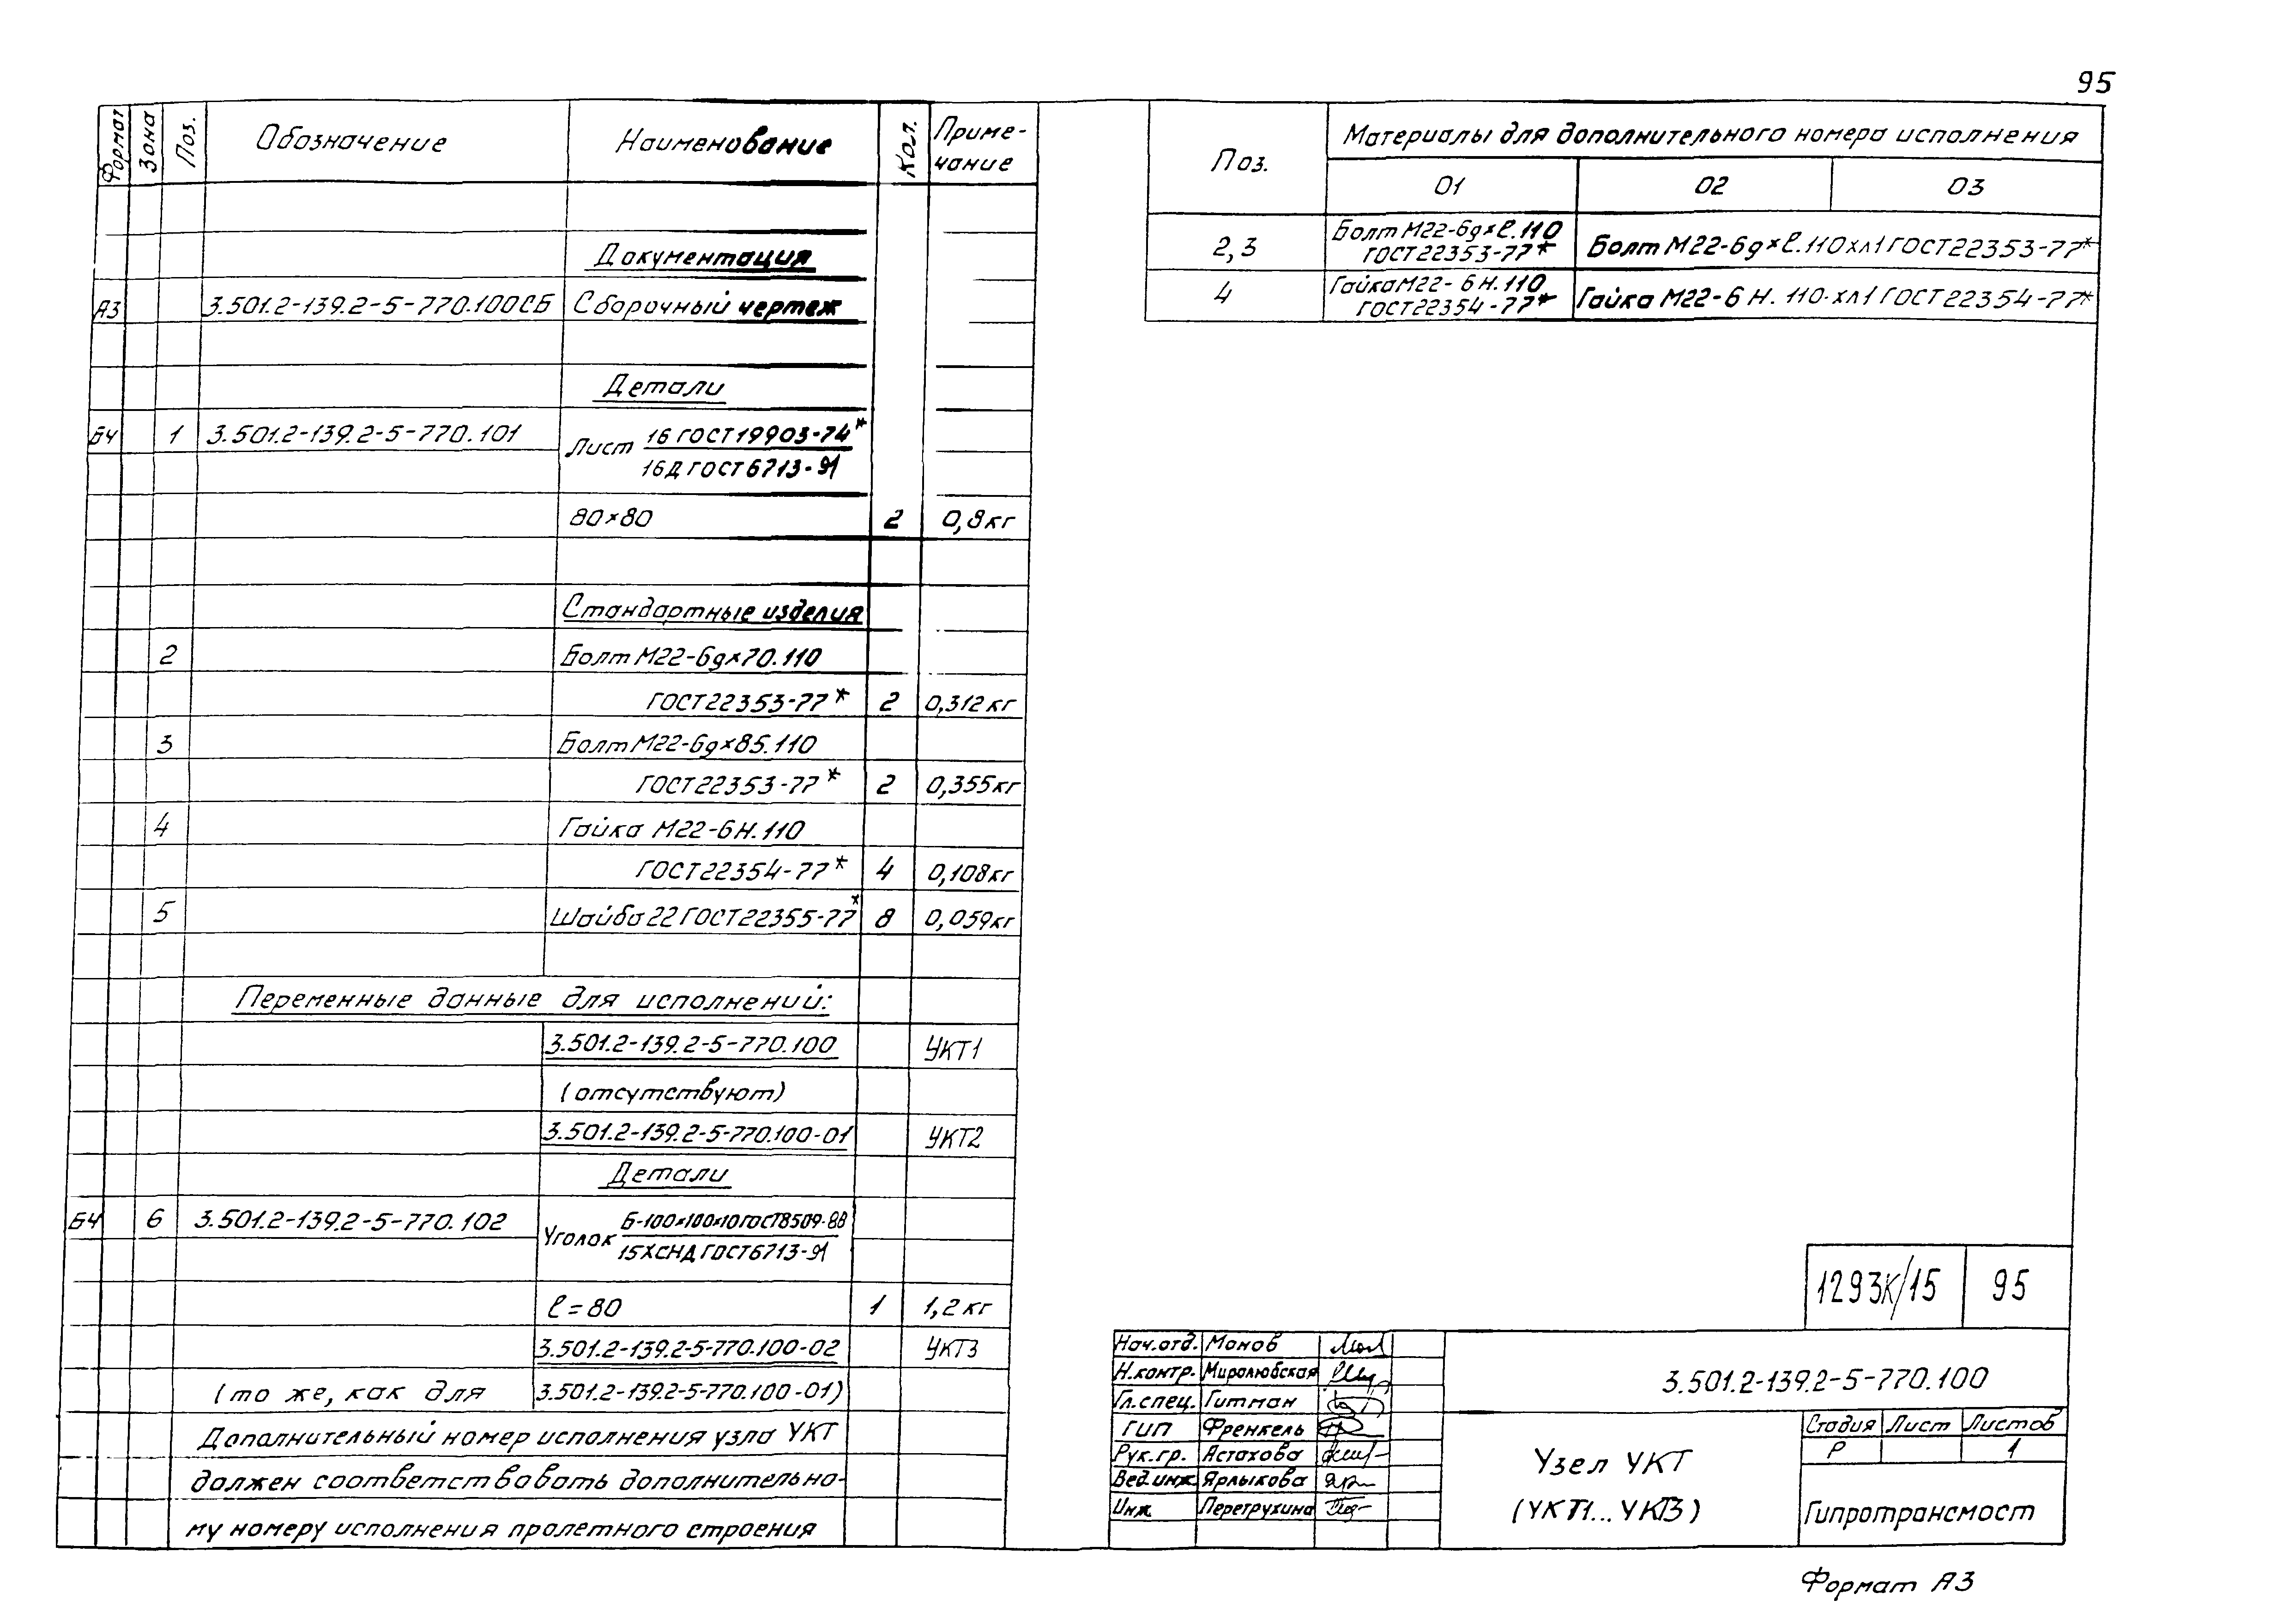 95
Формат Зона Поз. Обозначение Наименование Кол. Приме-
чание
Документация
А3 3.501.2-139.2-5-770.100СБ Сборочный чертеж
Детали
БЧ 1 3.501.2-139.2-5-770.101 Лист 16 ГОСТ 19903-74*
16Д ГОСТ 6713-91
80×80 2 0,8кг
Стандартные изделия
2 Болт М22-6g×70.110
ГОСТ 22353-77* 2 0,312кг
3 Болт М22-6g×85.110
ГОСТ 22353-77* 2 0,355кг
4 Гайка М22-6Н.110
ГОСТ 22354-77* 4 0,108кг
5 Шайба 22 ГОСТ 22355-77* 8 0,059кг
Переменные данные для исполнений:
3.501.2-139.2-5-770.100 УКТ1
(отсутствуют)
3.501.2-139.2-5-770.100-01 УКТ2
Детали
БЧ 6 3.501.2-139.2-5-770.102 Уголок Б-100×100×10 ГОСТ 8509-88
15ХСНД ГОСТ 6713-91
ℓ=80 1 1,2кг
3.501.2-139.2-5-770.100-02 УКТ3
(то же, как для 3.501.2-139.2-5-770.100-01)
Дополнительный номер исполнения узла УКТ
должен соответствовать дополнительно-
му номеру исполнения пролетного строения
Поз. Материалы для дополнительного номера исполнения
01 02 03
2,3 Болт М22-6g×ℓ.110
ГОСТ 22353-77* Болт М22-6g×ℓ.110хл1 ГОСТ 22353-77*
4 Гайка М22-6Н.110
ГОСТ 22354-77* Гайка М22-6Н.110.хл1 ГОСТ 22354-77*
1293К/15 95
Нач.отд. Монов
Н.контр. Миролюбская
Гл.спец. Гитман
ГИП Френкель
Рук.гр. Астахова
Вед.инж. Ярлыкова
Инж. Перетрухина
3.501.2-139.2-5-770.100
Узел УКТ
(УКТ1...УКТ3)
Стадия Лист Листов
Р 1
Гипротрансмост
Формат А3